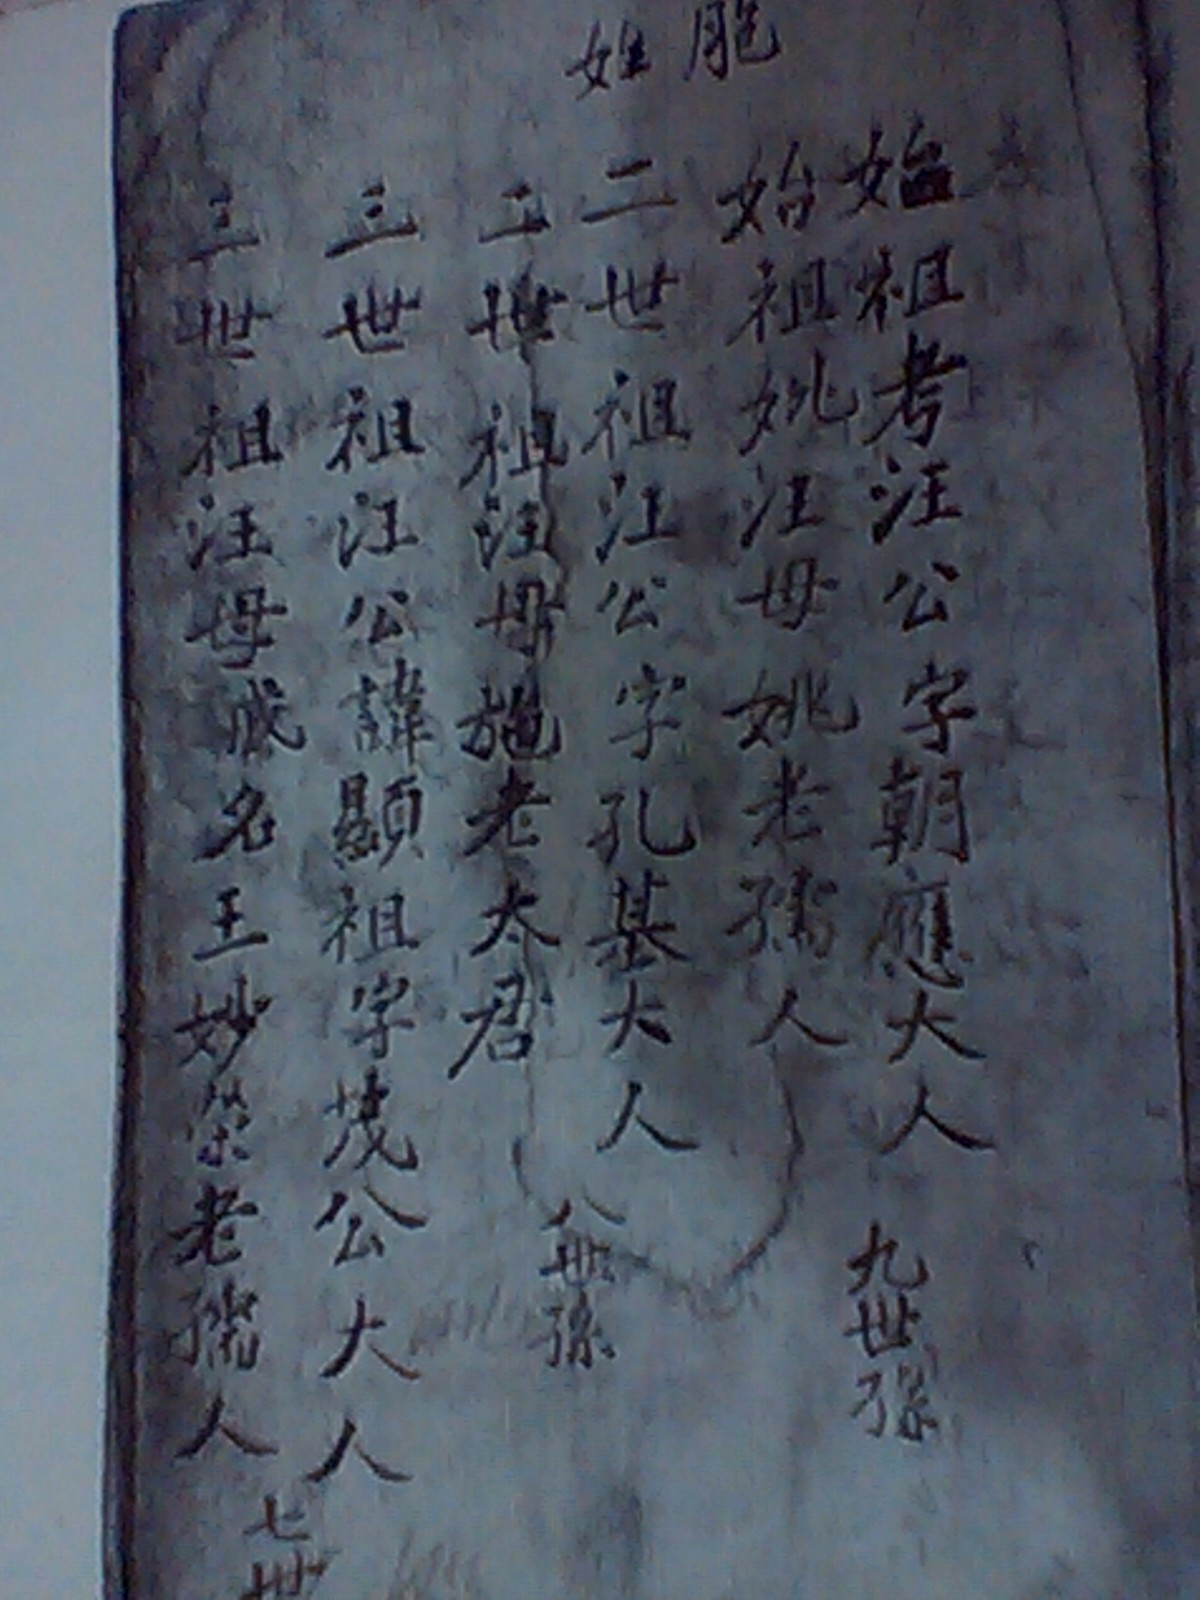 胞姓
始祖考汪公字朝應大人
九世孫
始祖妣汪母姚老孺人
二世祖汪公字孔基大人
八世孫
二世祖汪母施老太君
三世祖汪公諱顯祖字茂公大人
七世
三世祖汪母戚名王妙榮老孺人